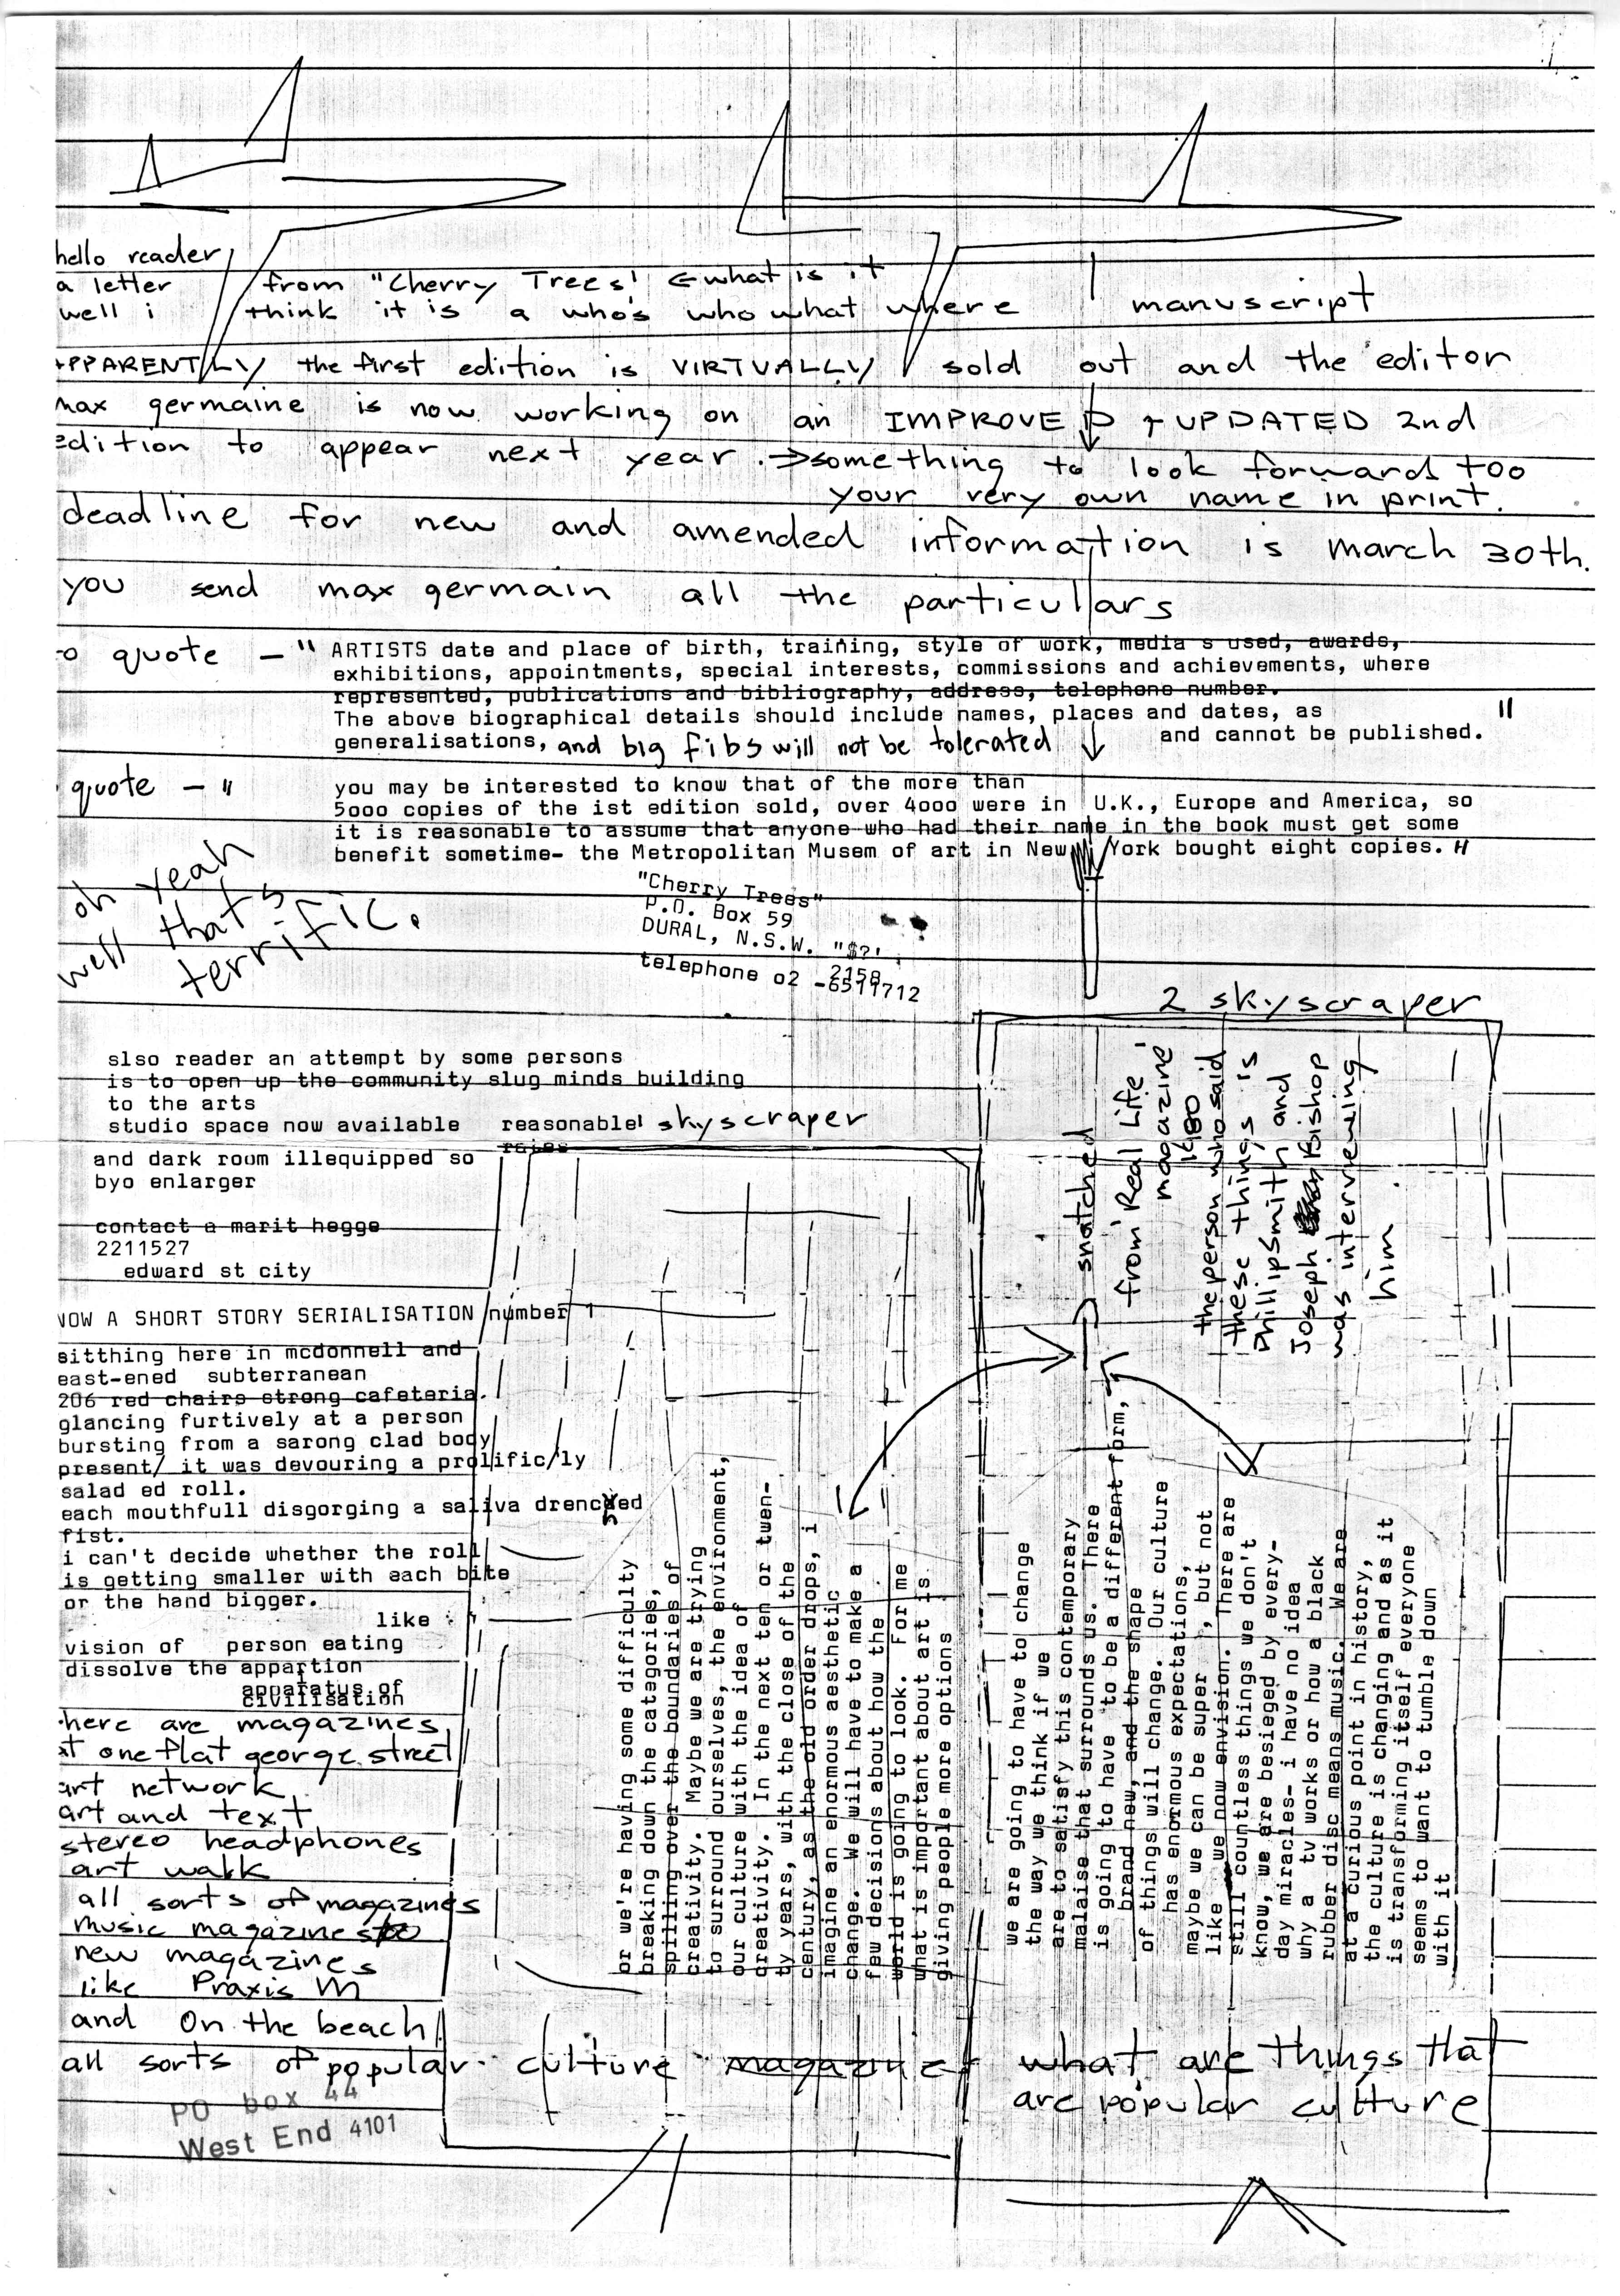 hello reader
a letter from "Cherry Trees' ← what is it
well i think it is a who's who what where manuscript
APPARENTLY the first edition is VIRTUALLY sold out and the editor
max germaine is now working on an IMPROVED + UPDATED 2nd
edition to appear next year. → something to look forward too
your very own name in print.
deadline for new and amended information is march 30th.
you send max germain all the particullars
to quote — " ARTISTS date and place of birth, training, style of work, media s used, awards,
exhibitions, appointments, special interests, commissions and achievements, where
represented, publications and bibliography, address, telephone number.
The above biographical details should include names, places and dates, as "
generalisations, and big fibs will not be tolerated and cannot be published.
quote — " you may be interested to know that of the more than
5ooo copies of the ist edition sold, over 4ooo were in U.K., Europe and America, so
it is reasonable to assume that anyone who had their name in the book must get some
benefit sometime- the Metropolitan Musem of art in New York bought eight copies. "
oh yeah
well that's
terrific.
"Cherry Trees"
P.O. Box 59
DURAL, N.S.W. "$?'
2158
telephone o2 -6511712
2 skyscraper
slso reader an attempt by some persons
is to open up the community slug minds building
to the arts
studio space now available reasonable' skyscraper
rates
and dark room illequipped so
byo enlarger
contact a marit hegge
2211527
edward st city
NOW A SHORT STORY SERIALISATION number 1
sitthing here in mcdonnell and
east-ened subterranean
206 red chairs strong cafeteria.
glancing furtively at a person
bursting from a sarong clad body
present/ it was devouring a prolific/ly
salad ed roll.
each mouthfull disgorging a saliva drenched
fist.
i can't decide whether the roll
is getting smaller with each bite
or the hand bigger.
like
vision of person eating
dissolve the appartion
apparatus of
civilisation
there are magazines
at one flat george street
art network
art and text
stereo headphones
art walk
all sorts of magazines
music magazines too
new magazines
like Praxis M
and On the beach
all sorts of popular culture magazines what are things that
are popular culture
PO box 44
West End 4101
snatched
from 'Real Life'
magazine
1980
the person who said
these things is
Phillip Smith and
Joseph Bishop
was interviewing
him.
or we're having some difficulty
breaking down the categories,
spilling over the boundaries of
creativity. Maybe we are trying
to surround ourselves, the environment,
our culture with the idea of
creativity. In the next ten or twen-
ty years, with the close of the
century, as the old order drops, i
imagine an enormous aesthetic
change. We will have to make a
few decisions about how the
world is going to look. For me
what is important about art is
giving people more options
we are going to have to change
the way we think if we
are to satisfy this contemporary
malaise that surrounds us. There
is going to have to be a different form,
brand new, and the shape
of things will change. Our culture
has enormous expectations,
maybe we can be super , but not
like we now envision. There are
still countless things we don't
know, we are besieged by every-
day miracles- i have no idea
why a tv works or how a black
rubber disc means music. We are
at a curious point in history,
the culture is changing and as it
is transforming itself everyone
seems to want to tumble down
with it